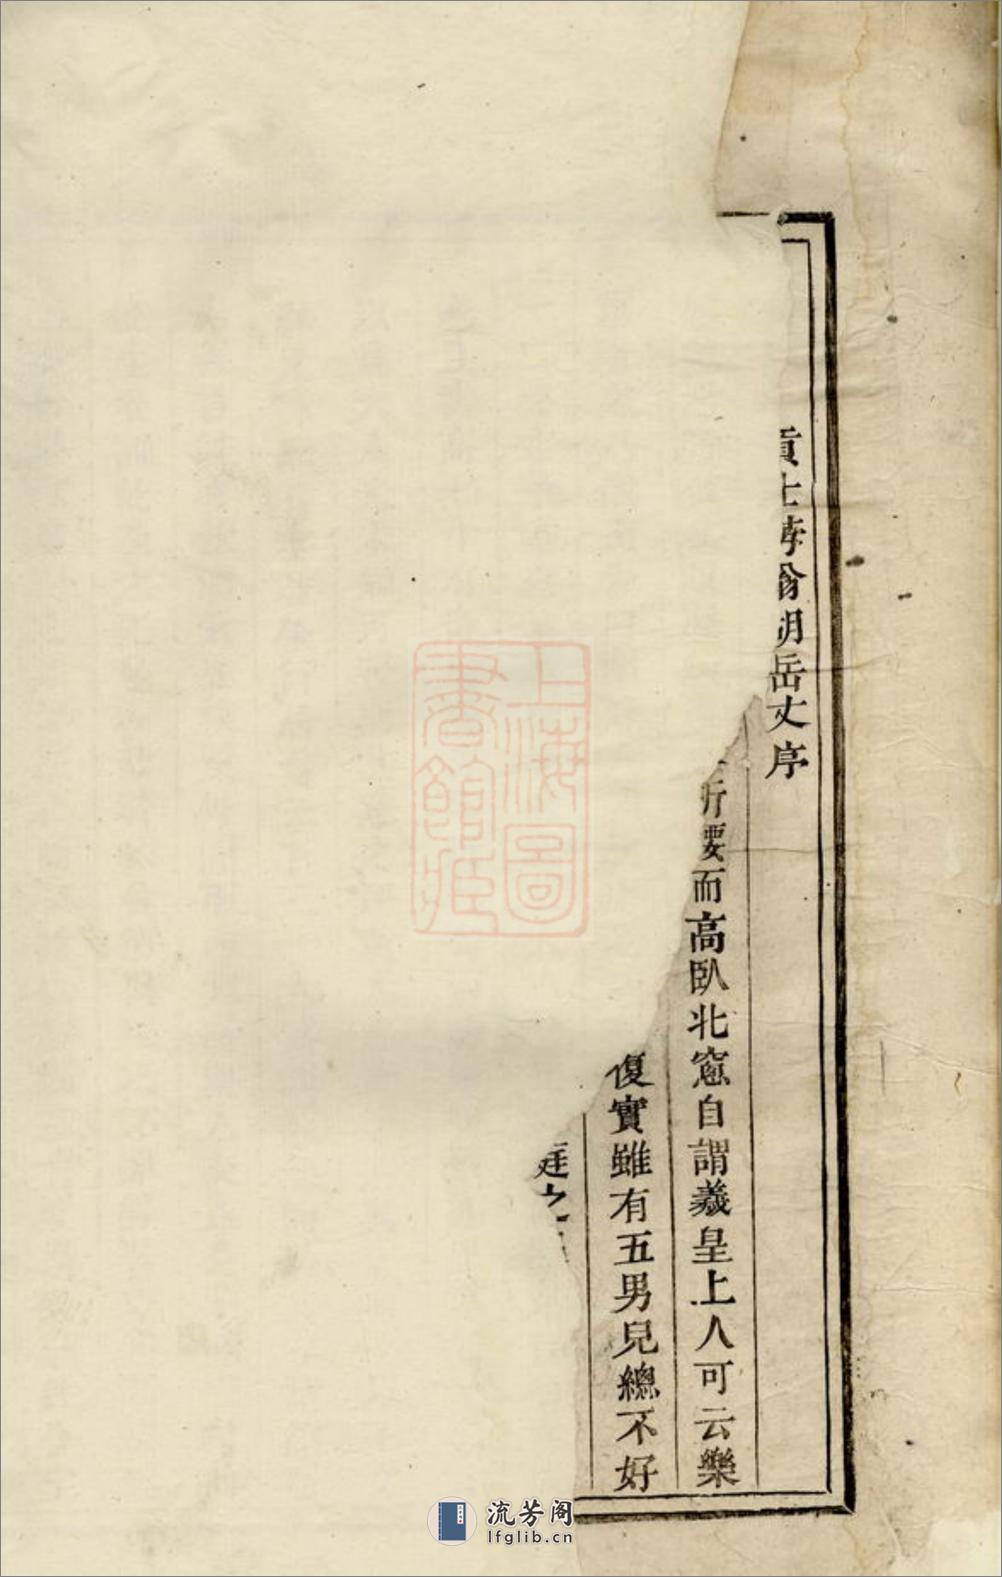 貢士海翁胡岳丈序
折腰而高臥北窻自謂羲皇上人可云樂
復實雖有五男兒總不好
庭之
上海圖
書館藏
流芳阁
lfglib.cn